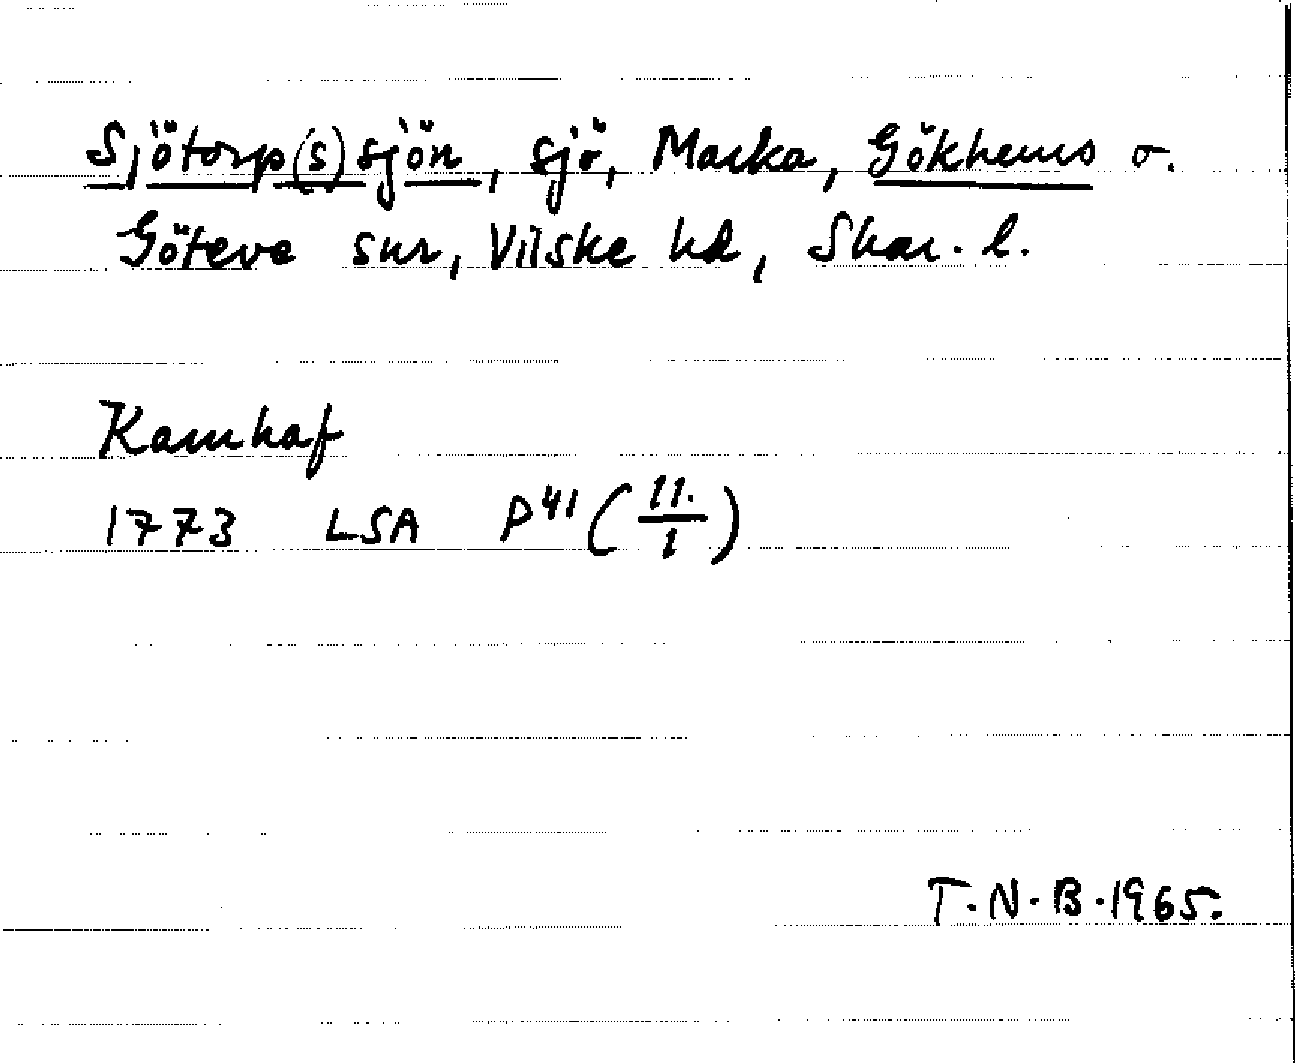 Sjötorp(s)sjön, sjö, Marka, Gökhems o.
Göteve snr, Vilske hd, Skar. l.
Kamhaf
1773 LSA P41 (11./1)
T.N.B. 1965.